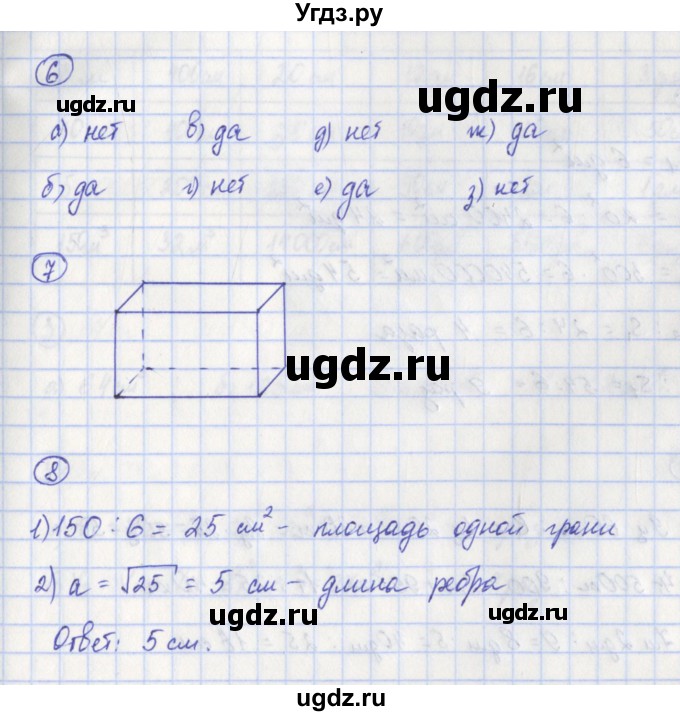 Угдз.ру
6
ugdz.ru
ugdz.ru
а) нет в) да д) нет ж) да
б) да г) нет е) да з) нет
7
ugdz.ru
8
ugdz.ru
1) 150 : 6 = 25 см² – площадь одной грани
2) a = √25 = 5 см – длина ребра
ugdz.ru
Ответ: 5 см.
ugdz.ru
ugdz.ru